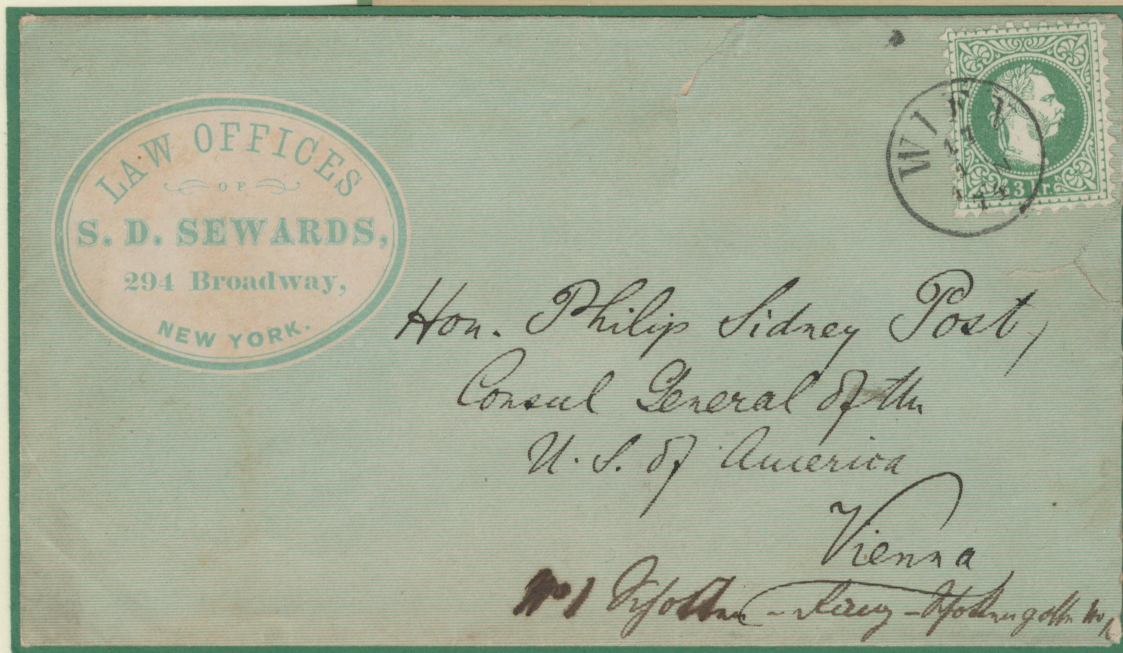 LAW OFFICES
OF
S. D. SEWARDS,
294 Broadway,
NEW YORK.
WIEN
3 kr.
Hon. Philip Sidney Post,
Consul General of the
U. S. of America
Vienna
No 1 Schotten-